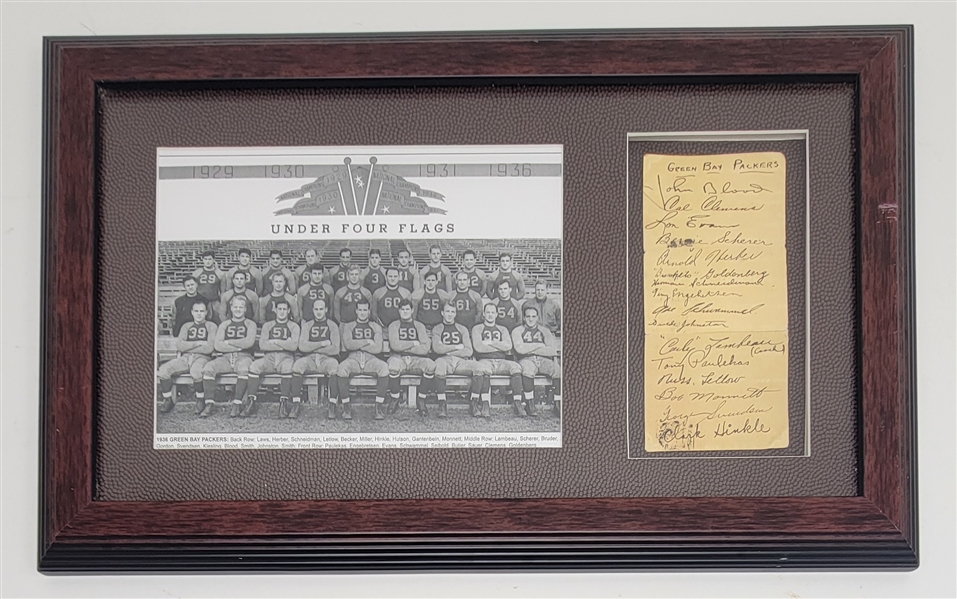 1929 1930 1931 1936
UNDER FOUR FLAGS
29
39 52 51 57 58 59 25 33 44
53 43 60 55 61 54
1936 GREEN BAY PACKERS: Back Row: Laws, Herber, Schneidman, Letlow, Becker, Miller, Hinkle, Hutson, Gantenbein, Monnett; Middle Row: Lambeau, Scherer, Bruder,
Gordon, Svendsen, Kiesling, Blood, Smith, Johnston, Smith; Front Row: Paulekas, Engebretsen, Evans, Schwammel, Seibold, Butler, Sauer, Clemens, Goldenberg
GREEN BAY PACKERS
John Blood
Cal Clemens
Lon Evans
Bernie Scherer
Arnold Herber
"Buckets" Goldenberg
Herman Schneidman
Tiny Engebretsen
Ade Schwammel
Swede Johnston
"Curly" Lambeau
(Coach)
Tony Paulekas
Russ. Letlow
Bob Monnett
George Svendsen
Clark Hinkle